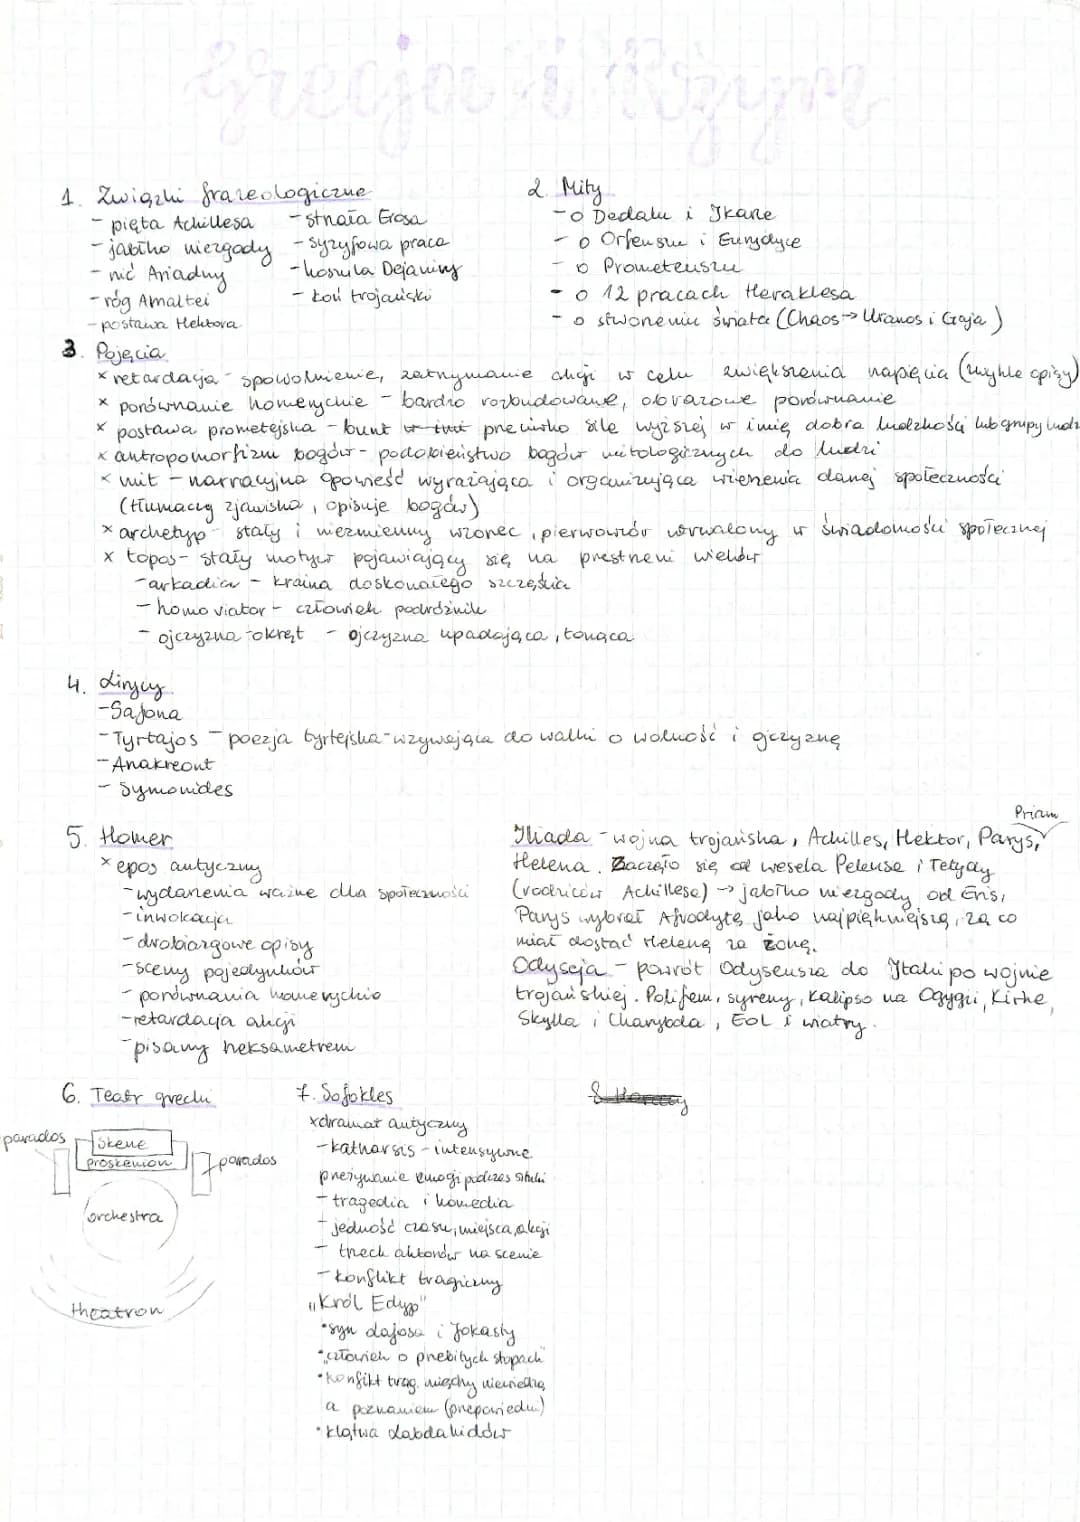 Grecja i Rzym
1. Związki frazeologiczne
- pięta Achillesa
- jabłko niezgody
- nić Ariadny
- róg Amaltei
- postawa Hektora
- strzała Erosa
- syzyfowa praca
- koszula Dejaniry
- koń trojański
2. Mity
- o Dedalu i Ikarze
- o Orfeuszu i Eurydyce
- o Prometeuszu
- o 12 pracach Heraklesa
- o stworzeniu świata (Chaos → Uranos i Gaja)
3. Pojęcia
x retardacja - spowolnienie, zatrzymanie akcji w celu zwiększenia napięcia (zwykle opisy)
x porównanie homeryckie - bardzo rozbudowane, obrazowe porównanie
x postawa prometejska - bunt przeciwko sile wyższej w imię dobra ludzkości lub grupy ludzi
x antropomorfizm bogów - podobieństwo bogów mitologicznych do ludzi
x mit - narracyjna opowieść wyrażająca i organizująca wierzenia danej społeczności
(tłumaczy zjawiska, opisuje bogów)
x archetyp - stały i niezmienny wzorzec, pierwowzór utrwalony w świadomości społecznej
x topos - stały motyw pojawiający się na przestrzeni wieków
- arkadia - kraina doskonałego szczęścia
- homo viator - człowiek podróżnik
- ojczyzna - okręt - ojczyzna upadająca, tonąca
4. Lirycy
- Safona
- Tyrtajos - poezja tyrtejska - wzywająca do walki o wolność i ojczyznę
- Anakreont
- Symonides
5. Homer
x epos antyczny
- wydarzenia ważne dla społeczności
- inwokacja
- drobiazgowe opisy
- sceny pojedynków
- porównania homeryckie
- retardacja akcji
- pisany heksametrem
Priam
Iliada - wojna trojańska, Achilles, Hektor, Parys,
Helena. Zaczęło się od wesela Peleusa i Tetydy
(rodziców Achillesa) → jabłko niezgody od Eris,
Parys wybrał Afrodytę jako najpiękniejszą, za co
miał dostać Helenę za żonę.
Odyseja - powrót Odyseusza do Itaki po wojnie
trojańskiej. Polifem, syreny, Kalipso na Ogygii, Kirke,
Skylla i Charybda, Eol i wiatry.
6. Teatr grecki
parados
skene
proskenion
parados
orchestra
theatron
7. Sofokles
x dramat antyczny
- katharsis - intensywne
przeżywanie emocji podczas sztuki
- tragedia i komedia
- jedność czasu, miejsca, akcji
- trzech aktorów na scenie
- konflikt tragiczny
"Król Edyp"
• syn Lajosa i Jokasty
• "człowiek o przebitych stopach"
• konfikt trag. między niewiedzą
a poznaniem (przepowiedni)
• klątwa Labdakidów
8. Horacy